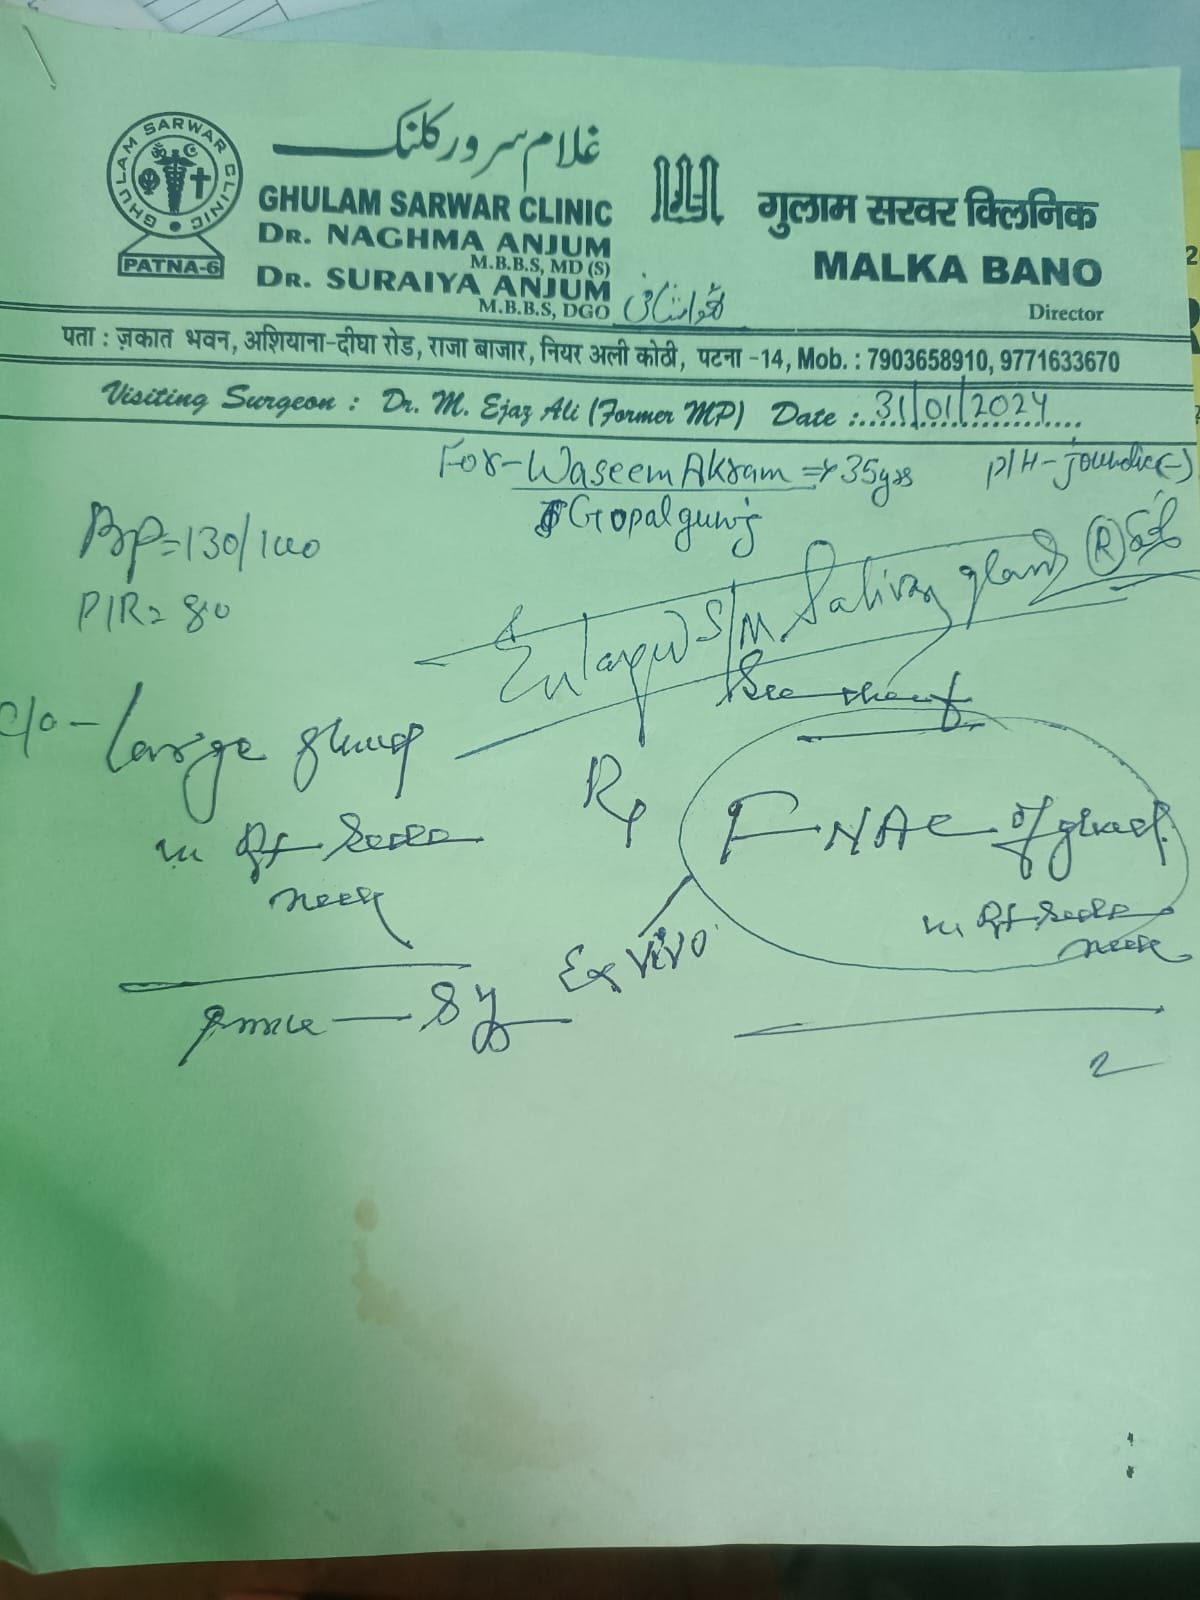 GHULAM SARWAR CLINIC
PATNA-6
غلام سرور کلنک
GHULAM SARWAR CLINIC
DR. NAGHMA ANJUM
M.B.B.S, MD (S)
DR. SURAIYA ANJUM
M.B.B.S, DGO
गुलाम सरवर क्लिनिक
MALKA BANO
Director
पता : ज़कात भवन, अशियाना-दीघा रोड, राजा बाजार, नियर अली कोठी, पटना -14, Mob. : 7903658910, 9771633670
Visiting Surgeon : Dr. M. Ejaz Ali (Former MP) Date : 31/01/2024
For - Waseem Akram => 35yrs
P/H - joundic (-)
Gopalgunj
BP = 130/100
P/R = 80
Enlarged S/M Salivary gland (R) side
C/O - Large gland
in Rt side
neck
since - 8 y
Rx
FNAC of gland
in Rt side
neck
Ex vivo
2